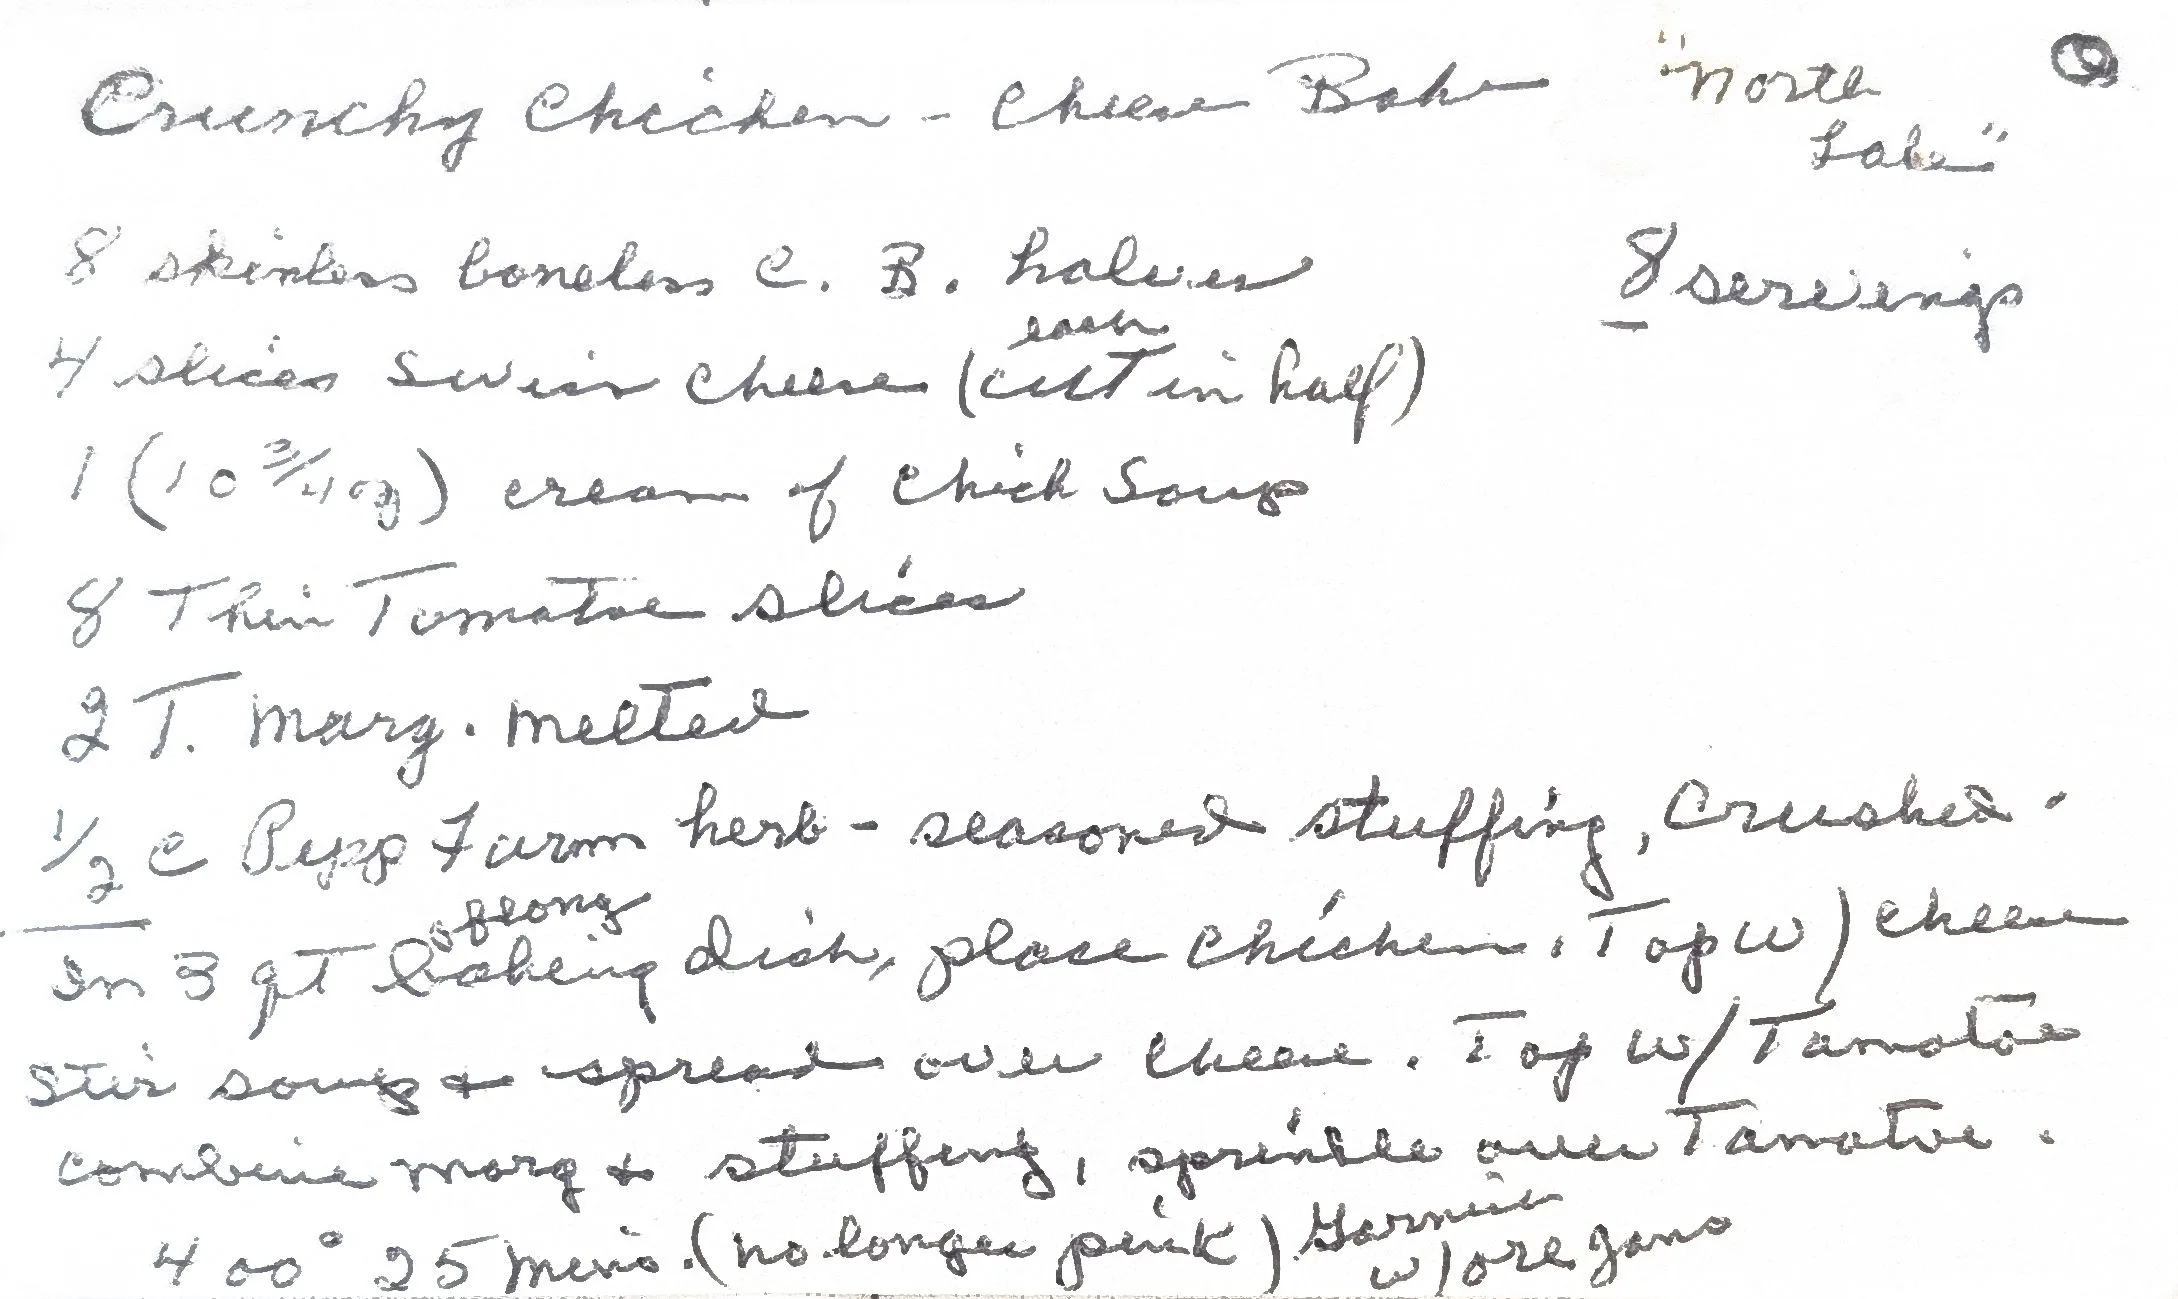 Crunchy Chicken - Cheese Bake
"North
Lake"
8 skinless boneless C. B. halves
8 servings
each
4 slices Swiss Cheese (cut in half)
1 (10 3/4 oz) cream of Chick Soup
8 Thin Tomatoe slices
2 T. Marg. Melted
1/2 C Pepp Farm herb - seasoned stuffing, Crushed.
oblong
In 3 qt baking dish, place chicken. Top w/ cheese
Stir soup & spread over cheese. Top w/ Tomatoe
combine marg & stuffing, sprinkle over Tomatoe.
400° 25 mins. (no longer pink) Garnish
w/ oregano